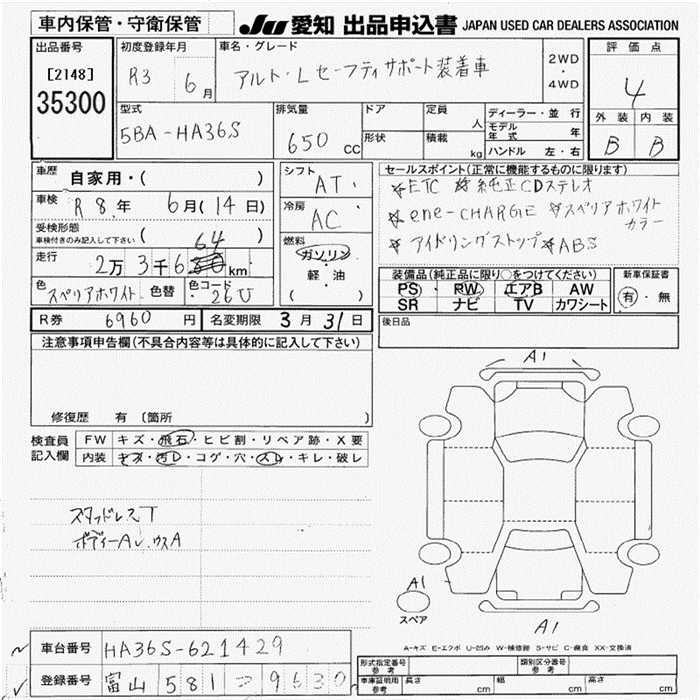 車内保管・守衛保管
JU 愛知 出品申込書 JAPAN USED CAR DEALERS ASSOCIATION
出品番号
[2148]
35300
初度登録年月
R3 6月
車名・グレード
アルト・L セーフティサポート装着車
2WD
・
4WD
評価点
4
外装 内装
B B
型式
5BA-HA36S
排気量
650 cc
ドア
形状
定員
人
積載
kg
ディーラー・並行
モデル年式 年
ハンドル 左・右
車歴
自家用・( )
車検 R8.年 6月(14日)
受検形態
車検付きのみ記入して下さい ( )
走行 2万3千6 64 km
色 スペリアホワイト 色替 色コード 26U
シフト AT.
冷房 AC
燃料
ガソリン
軽・油
( )
セールスポイント(正常に機能するものに限ります)
☆ETC ☆純正CDステレオ
☆ene-CHARGE ☆スペリアホワイト
カラー
☆アイドリングストップ☆ABS
装備品(純正品に限り○をつけてください)
PS・PW・エアB・AW
SR ナビ TV カワシート
新車保証書
有・無
後日品
R券 6960円 名変期限 3月31日
注意事項申告欄(不具合内容等は具体的に記入して下さい)
修復歴 有〔箇所 〕
検査員
記入欄
FW キズ・飛石・ヒビ割・リペア跡・X要
内装 キズ・汚レ・コゲ・穴・スレ・キレ・破レ
スタッドレスT
A1
A1
スペア
A1
A-キズ E-エクボ U-凹み W-補修跡 S-サビ C-腐食 XX-交換済
車台番号 HA36S-621429
登録番号 富山 581 こ 9630
形式指定番号
参考
類別区分番号
参考
車庫証明用
参考
長さ cm 幅 cm 高さ cm